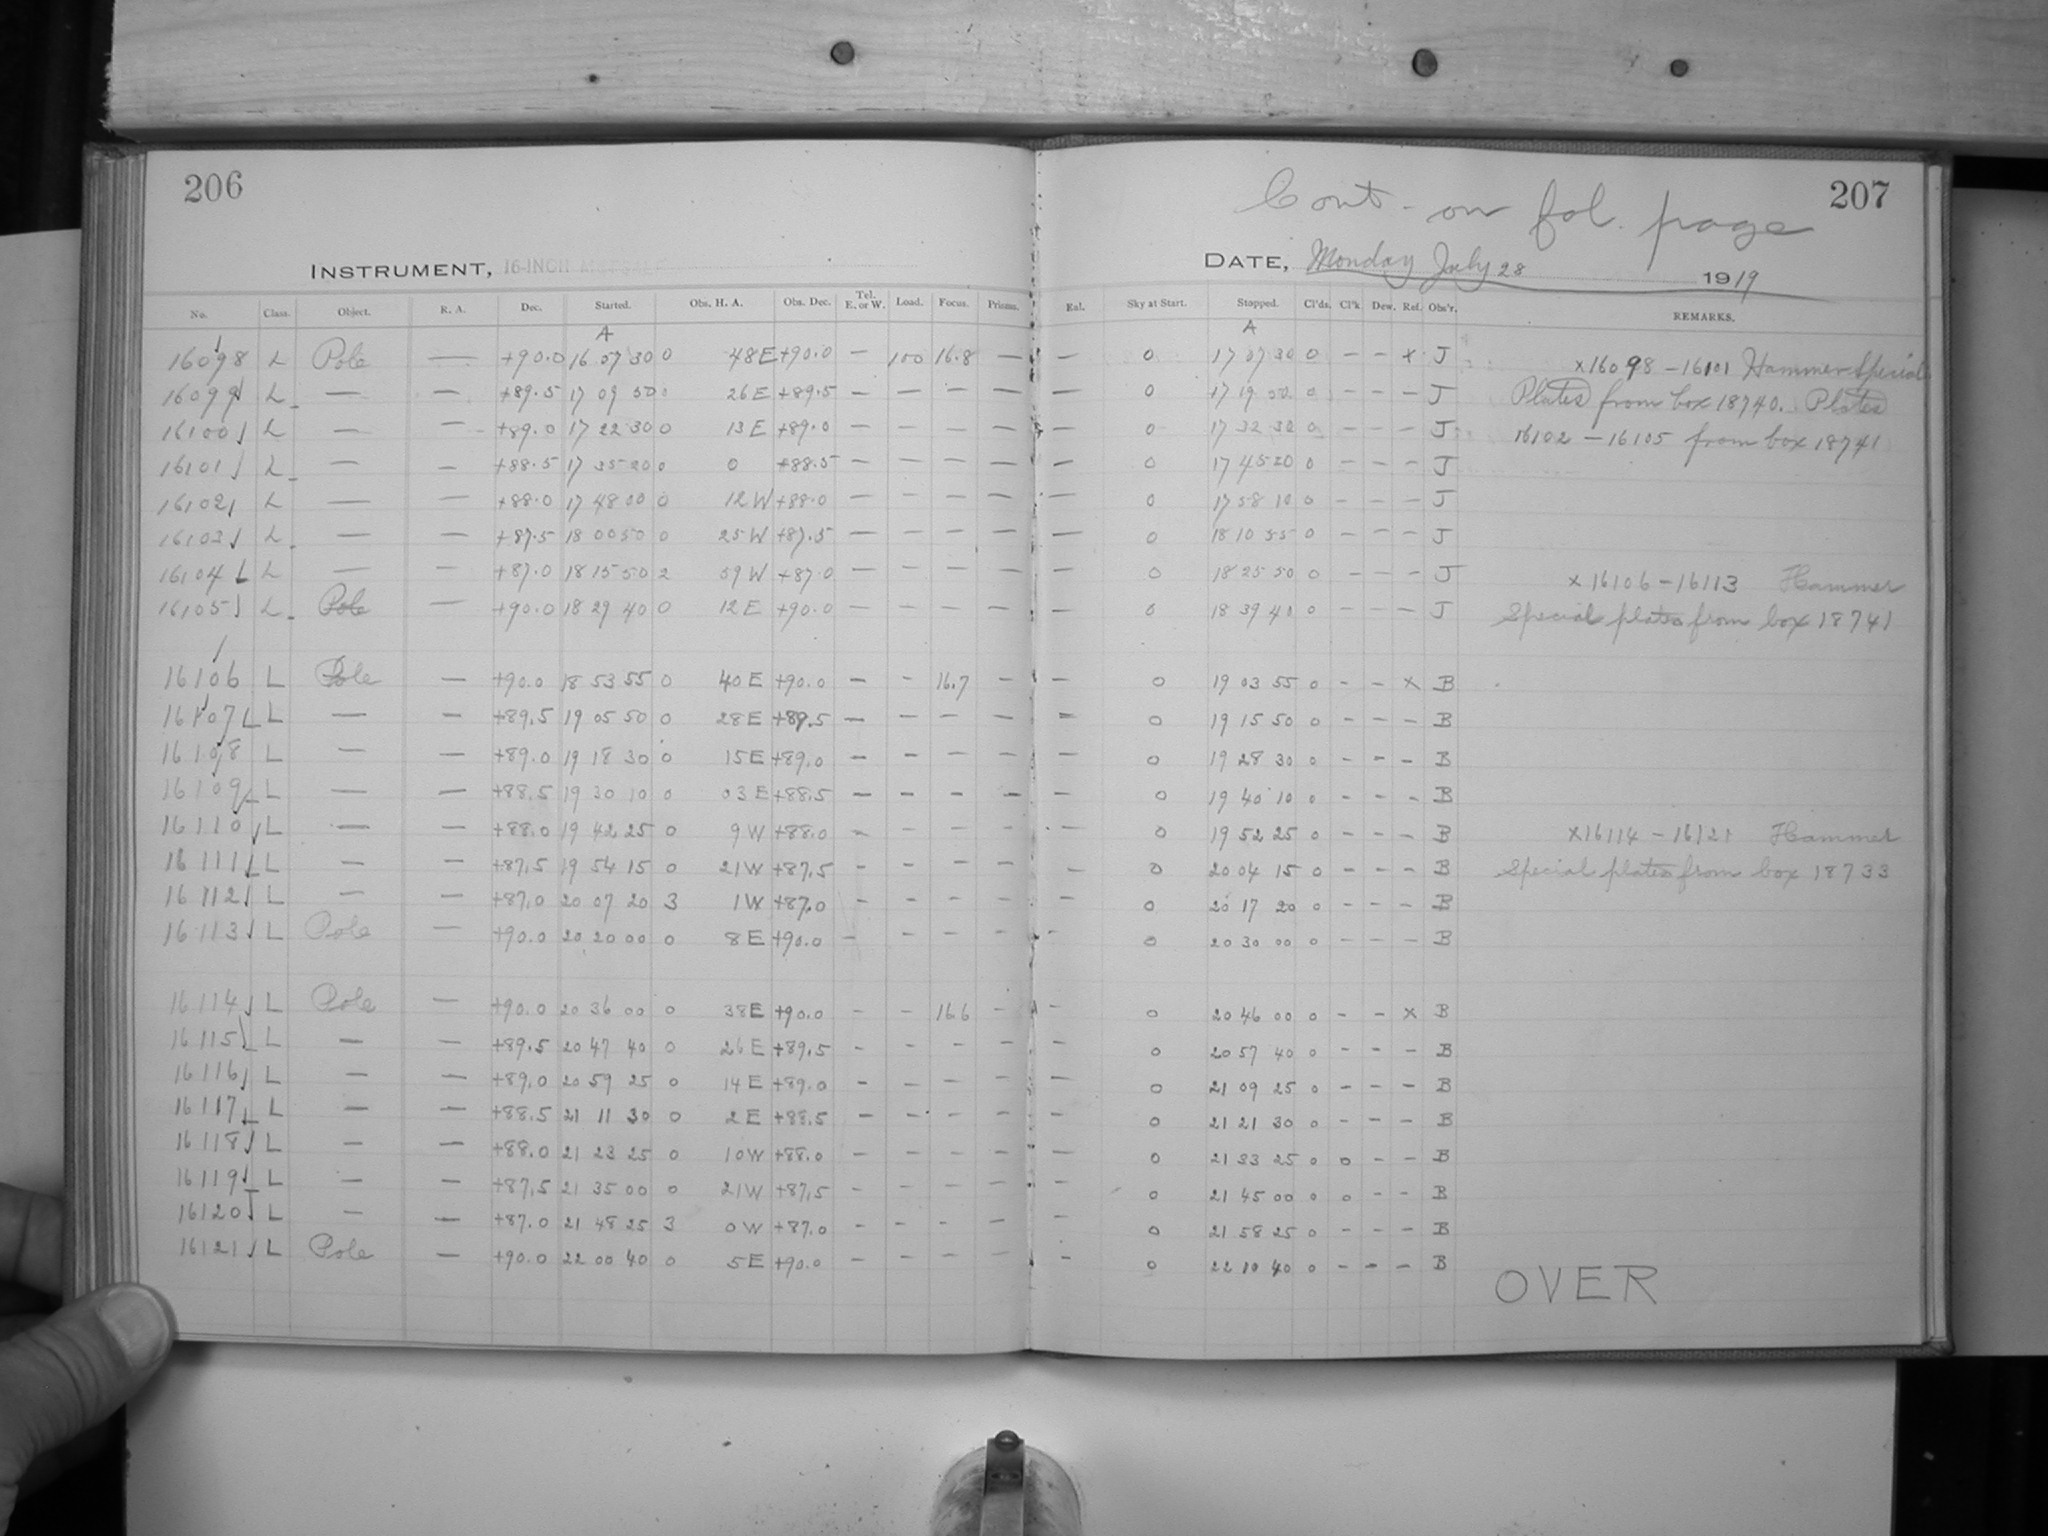 206
207
Cont - on fol. page
INSTRUMENT, 16-INCH
DATE, Monday July 28 1919
No. Class. Object. R. A. Dec. Started. Obs. H. A. Obs. Dec. Tel. E. or W. Load. Focus. Prisms. Eal. Sky at Start. Stopped. Cl'ds. Cl'k Dew. Ref. Obs'r. REMARKS.
A A
16098 L Pole — +90.0 16 07 30 0 48 E +90.0 — 100 16.8 — — 0 17 07 30 0 — — x J x16098 - 16101 Hammer Special
16099 L — — +89.5 17 09 50 0 26 E +89.5 — — — — — 0 17 19 50 0 — — — J Plates from box 18740. Plates
16100 L — — +89.0 17 22 30 0 13 E +89.0 — — — — — 0 17 32 30 0 — — — J 16102 - 16105 from box 18741
16101 L — — +88.5 17 35 20 0 0 +88.5 — — — — — 0 17 45 20 0 — — — J
16102 L — — +88.0 17 48 00 0 12 W +88.0 — — — — — 0 17 58 10 0 — — — J
16103 L — — +87.5 18 00 50 0 25 W +87.5 — — — — — 0 18 10 55 0 — — — J
16104 L — — +87.0 18 15 50 2 59 W +87.0 — — — — — 0 18 25 50 0 — — — J x16106 - 16113 Hammer
16105 L Pole — +90.0 18 29 40 0 12 E +90.0 — — — — — 0 18 39 40 0 — — — J Special plates from box 18741
16106 L Pole — +90.0 18 53 55 0 40 E +90.0 — — 16.7 — — 0 19 03 55 0 — — x B
16107 L — — +89.5 19 05 50 0 28 E +89.5 — — — — — 0 19 15 50 0 — — — B
16108 L — — +89.0 19 18 30 0 15 E +89.0 — — — — — 0 19 28 30 0 — — — B
16109 L — — +88.5 19 30 10 0 03 E +88.5 — — — — — 0 19 40 10 0 — — — B
16110 L — — +88.0 19 42 25 0 9 W +88.0 — — — — — 0 19 52 25 0 — — — B x16114 - 16121 Hammer
16111 L — — +87.5 19 54 15 0 21 W +87.5 — — — — — 0 20 04 15 0 — — — B Special plates from box 18733
16112 L — — +87.0 20 07 20 3 1 W +87.0 — — — — — 0 20 17 20 0 — — — B
16113 L Pole — +90.0 20 20 00 0 8 E +90.0 — — — — — 0 20 30 00 0 — — — B
16114 L Pole — +90.0 20 36 00 0 38 E +90.0 — — 16.6 — — 0 20 46 00 0 — — x B
16115 L — — +89.5 20 47 40 0 26 E +89.5 — — — — — 0 20 57 40 0 — — — B
16116 L — — +89.0 20 59 25 0 14 E +89.0 — — — — — 0 21 09 25 0 — — — B
16117 L — — +88.5 21 11 30 0 2 E +88.5 — — — — — 0 21 21 30 0 — — — B
16118 L — — +88.0 21 23 25 0 10 W +88.0 — — — — — 0 21 33 25 0 0 — — B
16119 L — — +87.5 21 35 00 0 21 W +87.5 — — — — — 0 21 45 00 0 0 — — B
16120 L — — +87.0 21 48 25 3 0 W +87.0 — — — — — 0 21 58 25 0 — — — B
16121 L Pole — +90.0 22 00 40 0 5 E +90.0 — — — — — 0 22 10 40 0 — — — B
OVER